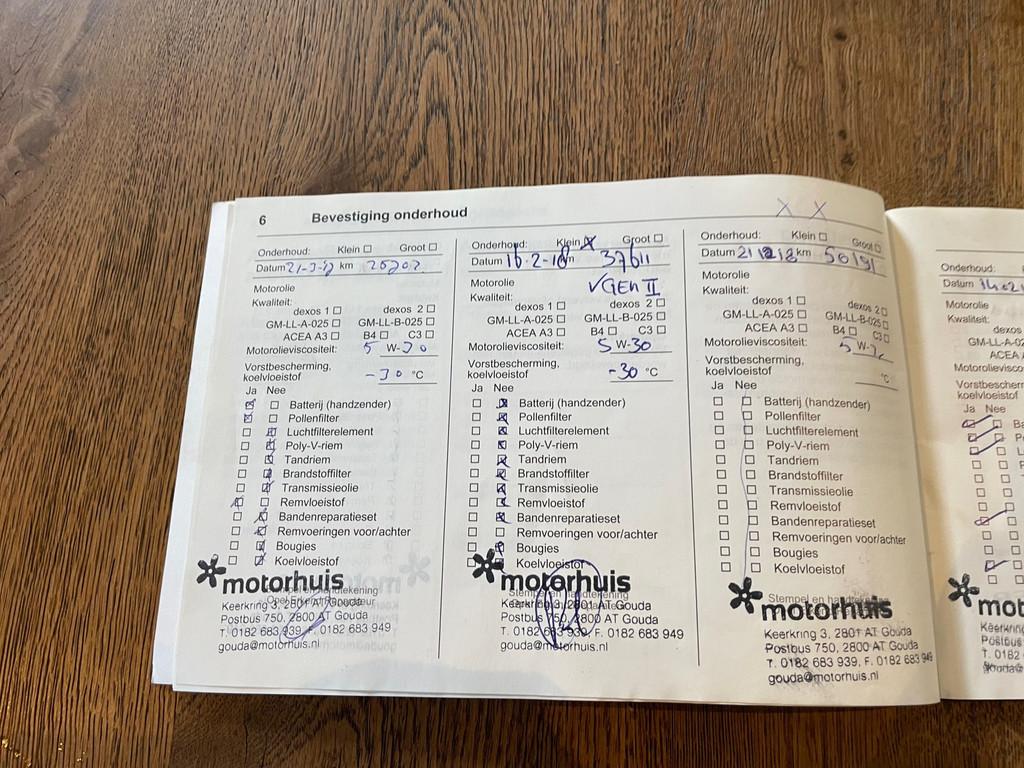 6 Bevestiging onderhoud
Onderhoud: Klein Groot
Datum km
Motorolie
Kwaliteit:
dexos 1 dexos 2
GM-LL-A-025 GM-LL-B-025
ACEA A3 B4 C3
Motorolieviscositeit: 5 W-30
Vorstbescherming,
koelvloeistof -30 °C
Ja Nee
Batterij (handzender)
Pollenfilter
Luchtfilterelement
Poly-V-riem
Tandriem
Brandstoffilter
Transmissieolie
Remvloeistof
Bandenreparatieset
Remvoeringen voor/achter
Bougies
Koelvloeistof
motorhuis
Stempel en handtekening
Keerkring 3, 2801 AT Gouda
Postbus 750, 2800 AT Gouda
T. 0182 683 939, F. 0182 683 949
gouda@motorhuis.nl
Onderhoud: Klein Groot
Datum 16-2-18 km 37611
Motorolie VGEN II
Kwaliteit:
dexos 1 dexos 2
GM-LL-A-025 GM-LL-B-025
ACEA A3 B4 C3
Motorolieviscositeit: 5 W-30
Vorstbescherming,
koelvloeistof -30 °C
Ja Nee
Batterij (handzender)
Pollenfilter
Luchtfilterelement
Poly-V-riem
Tandriem
Brandstoffilter
Transmissieolie
Remvloeistof
Bandenreparatieset
Remvoeringen voor/achter
Bougies
Koelvloeistof
motorhuis
Stempel en handtekening
Keerkring 3, 2801 AT Gouda
Postbus 750, 2800 AT Gouda
T. 0182 683 939, F. 0182 683 949
gouda@motorhuis.nl
X X
Onderhoud: Klein Groot
Datum 21 12 18 km 50191
Motorolie
Kwaliteit:
dexos 1 dexos 2
GM-LL-A-025 GM-LL-B-025
ACEA A3 B4 C3
Motorolieviscositeit: 5 W-
Vorstbescherming,
koelvloeistof °C
Ja Nee
Batterij (handzender)
Pollenfilter
Luchtfilterelement
Poly-V-riem
Tandriem
Brandstoffilter
Transmissieolie
Remvloeistof
Bandenreparatieset
Remvoeringen voor/achter
Bougies
Koelvloeistof
Stempel en
motorhuis
Keerkring 3, 2801 AT Gouda
Postbus 750, 2800 AT Gouda
T. 0182 683 939, F. 0182 683 949
gouda@motorhuis.nl
Onderhoud:
Datum
Motorolie
Kwaliteit:
dexos
GM-LL-A-02
ACEA A
Motorolievisco
Vorstbescherm
koelvloeistof
Ja Nee
mot
Keerkrin
Postbus
T. 0182
gouda@